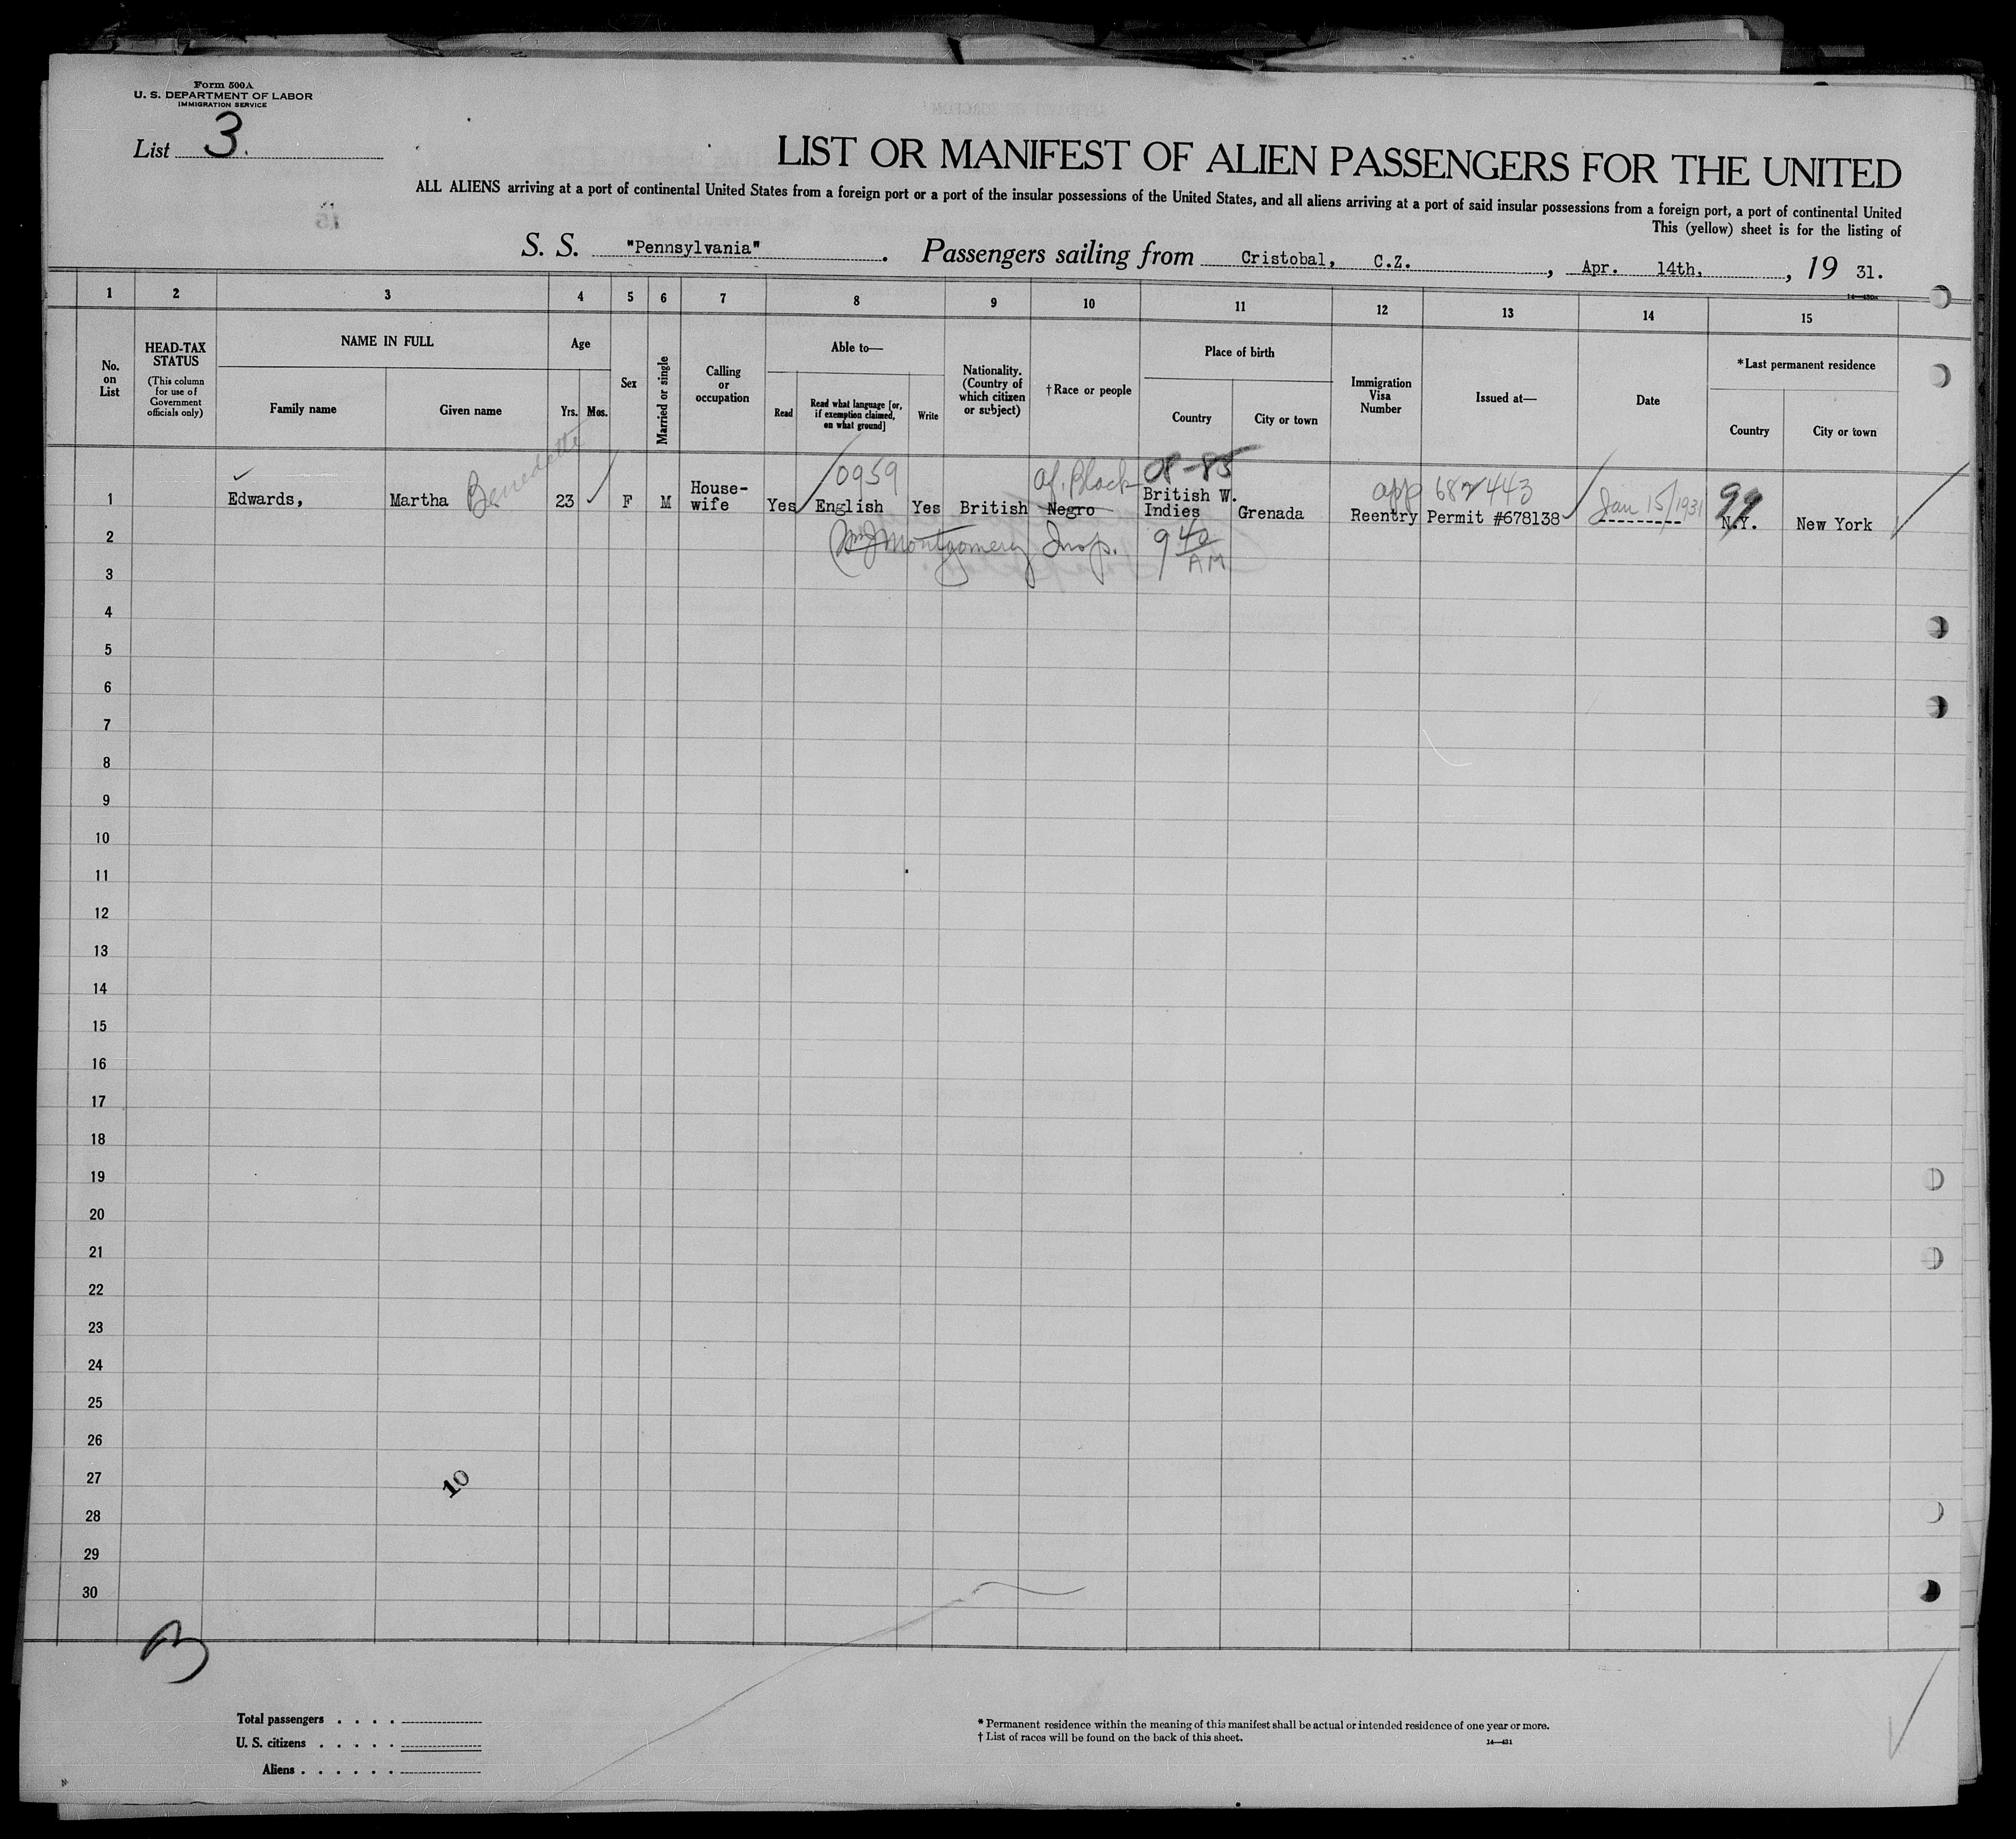 Form 500A
U. S. DEPARTMENT OF LABOR
IMMIGRATION SERVICE
List 3.
LIST OR MANIFEST OF ALIEN PASSENGERS FOR THE UNITED
ALL ALIENS arriving at a port of continental United States from a foreign port or a port of the insular possessions of the United States, and all aliens arriving at a port of said insular possessions from a foreign port, a port of continental United
This (yellow) sheet is for the listing of
S. S. "Pennsylvania". Passengers sailing from Cristobal, C.Z., Apr. 14th, 19 31.
1 2 3 4 5 6 7 8 9 10 11 12 13 14 15
No. on List
HEAD-TAX STATUS
(This column for use of Government officials only)
NAME IN FULL
Family name
Given name
Age
Yrs. Mos.
Sex
Married or single
Calling or occupation
Able to—
Read
Read what language [or, if exemption claimed, on what ground]
Write
Nationality. (Country of which citizen or subject)
†Race or people
Place of birth
Country
City or town
Immigration Visa Number
Issued at—
Date
*Last permanent residence
Country
City or town
Benedetta 0959 af. Black 08-85 app 682443 Jan 15/1931 99
1 Edwards, Martha 23 F M House-wife Yes English Yes British Negro British W. Indies Grenada Reentry Permit #678138 N.Y. New York
2 Montgomery Insp. 9 40 AM
3
4
5
6
7
8
9
10
11
12
13
14
15
16
17
18
19
20
21
22
23
24
25
26
27
10
28
29
30
3
Total passengers . . . .
U. S. citizens . . . . .
Aliens . . . . . .
* Permanent residence within the meaning of this manifest shall be actual or intended residence of one year or more.
† List of races will be found on the back of this sheet.
14—431